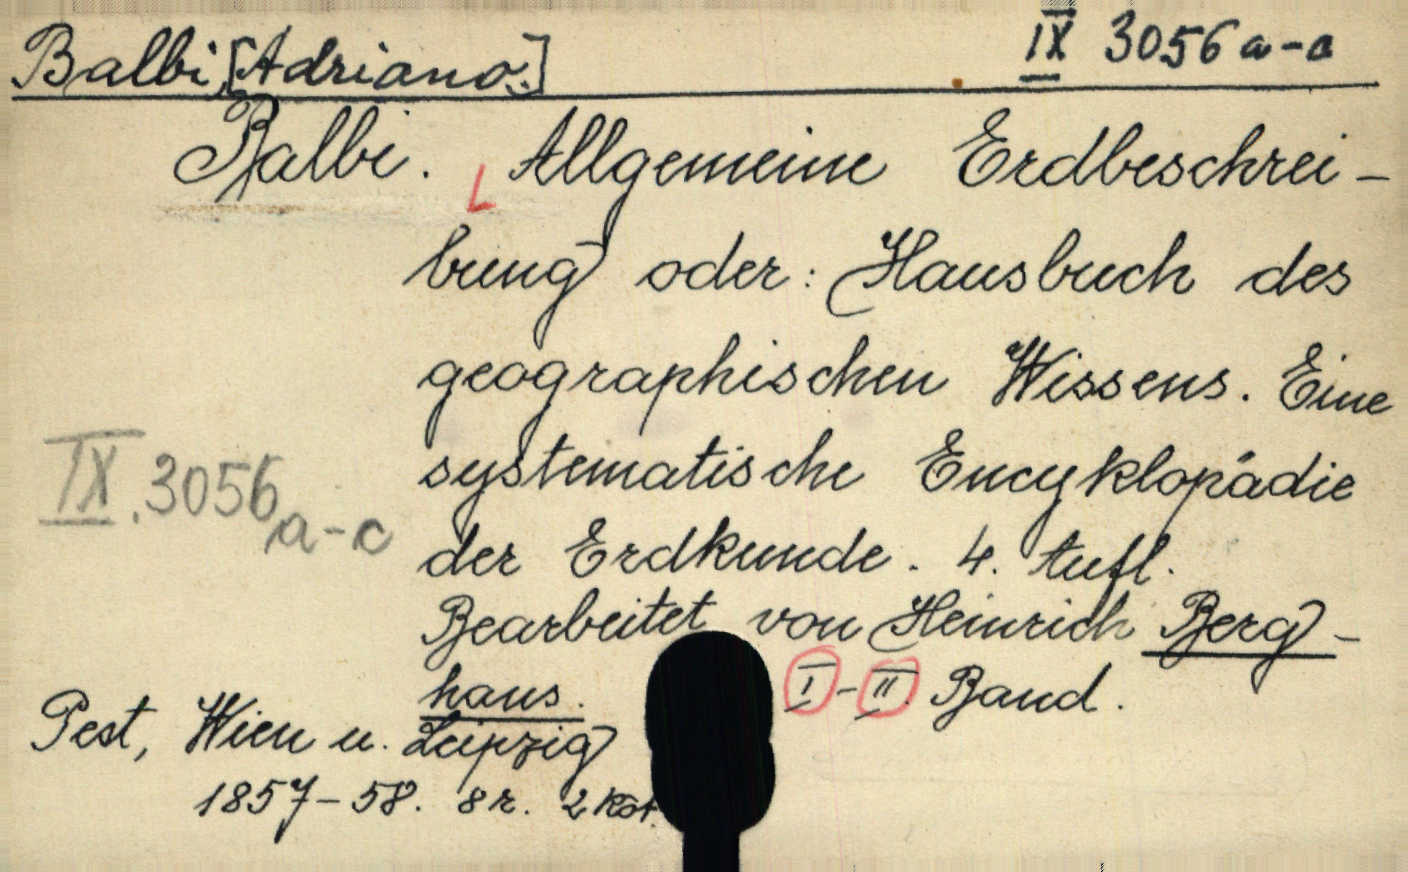 Balbi, [Adriano.] IX 3056 a-c
Balbi. Allgemeine Erdbeschrei-
bung oder: Hausbuch des
geographischen Wissens. Eine
systematische Encyklopädie
IX. 3056 a-c
der Erdkunde. 4. Aufl.
Bearbeitet von Heinrich Berg-
haus. I-II Band.
Pest, Wien u. Leipzig
1857-58. 8r. 2 köt.